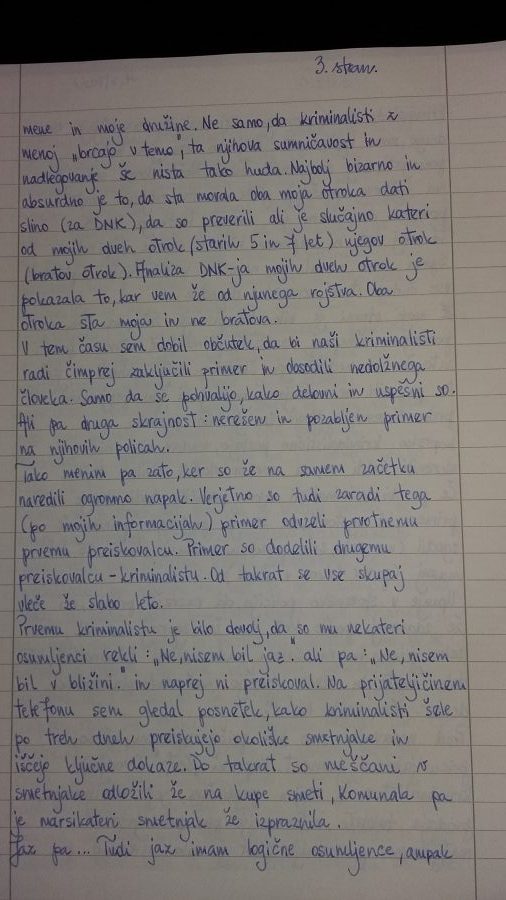 3. stran.
mene in moje družine. Ne samo, da kriminalisti z
menoj „brcajo v temo", ta njihova sumničavost in
nadlegovanje še nista tako huda. Najbolj bizarno in
absurdno je to, da sta morala oba moja otroka dati
slino (za DNK), da so preverili ali je slučajno kateri
od mojih dveh otrok (starih 5 in 7 let) njegov otrok
(bratov otrok). Analiza DNK-ja mojih dveh otrok je
pokazala to, kar vem že od njunega rojstva. Oba
otroka sta moja in ne bratova.
V tem času sem dobil občutek, da bi naši kriminalisti
radi čimprej zaključili primer in obsodili nedolžnega
človeka. Samo da se pohvalijo, kako delovni in uspešni so.
Ali pa druga skrajnost: nerešen in pozabljen primer
na njihovih policah.
Tako menim pa zato, ker so že na samem začetku
naredili ogromno napak. Verjetno so tudi zaradi tega
(po mojih informacijah) primer odvzeli prvotnemu
prvemu preiskovalcu. Primer so dodelili drugemu
preiskovalcu - kriminalistu. Od takrat se vse skupaj
vleče že slabo leto.
Prvemu kriminalistu je bilo dovolj, da so mu nekateri
osumljenci rekli: „Ne, nisem bil jaz." ali pa: „Ne, nisem
bil v bližini." in naprej ni preiskoval. Na prijateljičinem
telefonu sem gledal posnetek, kako kriminalisti šele
po treh dneh preiskujejo okoliške smetnjake in
iščejo ključne dokaze. Do takrat so meščani v
smetnjake odložili že na kupe smeti, Komunala pa
je marsikateri smetnjak že izpraznila.
Jaz pa... Tudi jaz imam logične osumljence, ampak